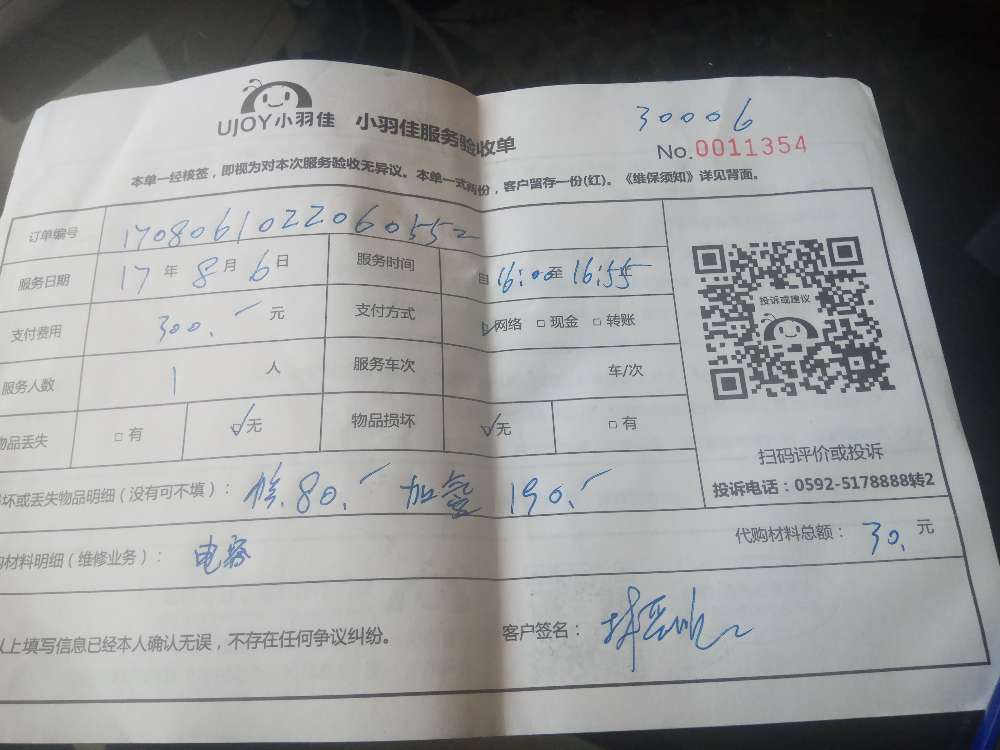 30006
UJOY小羽佳 小羽佳服务验收单
No.0011354
本单一经核签，即视为对本次服务验收无异议。本单一式两份，客户留存一份(红)。《维保须知》详见背面。
订单编号 1708061022060552
服务日期 17年8月6日 服务时间 自16:00至16:55
支付费用 300.- 元 支付方式 网络 □现金 □转账
投诉或建议
服务人数 1 人 服务车次 车/次
物品丢失 □有 ☑无 物品损坏 ☑无 □有
扫码评价或投诉
投诉电话：0592-5178888转2
坏或丢失物品明细（没有可不填）： 修.80.- 加氟 190.-
购材料明细（维修业务）： 电容 代购材料总额： 30. 元
以上填写信息已经本人确认无误，不存在任何争议纠纷。 客户签名：